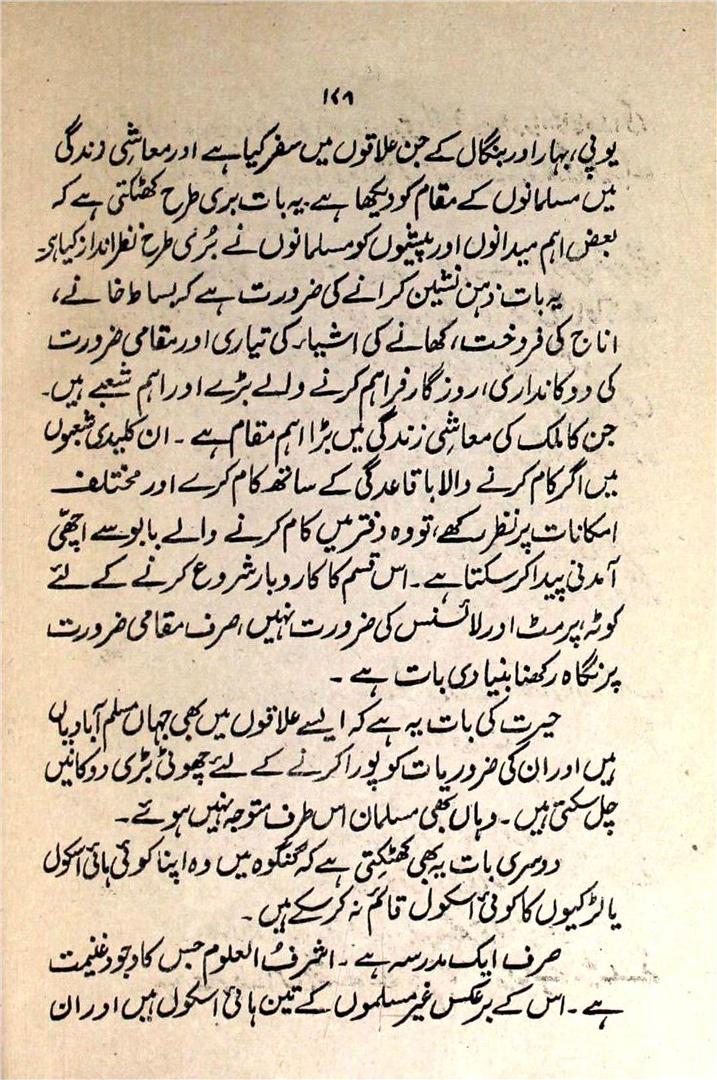 ۱۷۹
یوپی، بہار اور بنگال کے جن علاقوں میں سفر کیا ہے اور معاشی زندگی
میں مسلمانوں کے مقام کو دیکھا ہے۔ یہ بات بری طرح کھٹکتی ہے کہ
بعض اہم میدانوں اور پیشوں کو مسلمانوں نے بُری طرح نظر انداز کیا ہے۔
یہ بات ذہن نشین کرانے کی ضرورت ہے کہ بساط خانے،
اناج کی فروخت، کھانے کی اشیاء کی تیاری اور مقامی ضرورت
کی دوکانداری، روزگار فراہم کرنے والے بڑے اور اہم شعبے ہیں۔
جن کا ملک کی معاشی زندگی میں بڑا اہم مقام ہے ۔ ان کلیدی شعبوں
میں اگر کام کرنے والا باقاعدگی کے ساتھ کام کرے اور مختلف
امکانات پر نظر رکھے، تو وہ دفتر میں کام کرنے والے بابو سے اچھی
آمدنی پیدا کر سکتا ہے ۔ اس قسم کا کاروبار شروع کرنے کے لئے
کوٹہ، پرمٹ اور لائسنس کی ضرورت نہیں، صرف مقامی ضرورت
پر نگاہ رکھنا بنیادی بات ہے ۔
حیرت کی بات یہ ہے کہ ایسے علاقوں میں بھی جہاں مسلم آبادیاں
ہیں اور ان کی ضروریات کو پورا کرنے کے لئے چھوٹی بڑی دوکانیں
چل سکتی ہیں ۔ وہاں بھی مسلمان اس طرف متوجہ نہیں ہوئے ۔
دوسری بات یہ بھی کھٹکتی ہے کہ گنگوہ میں وہ اپنا کوئی ہائی اسکول
یا لڑکیوں کا کوئی اسکول قائم نہ کر سکے ہیں ۔
صرف ایک مدرسہ ہے ۔ اشرفُ العلوم جس کا وجود غنیمت
ہے ۔ اس کے برعکس غیر مسلموں کے تین ہائی اسکول ہیں اور ان